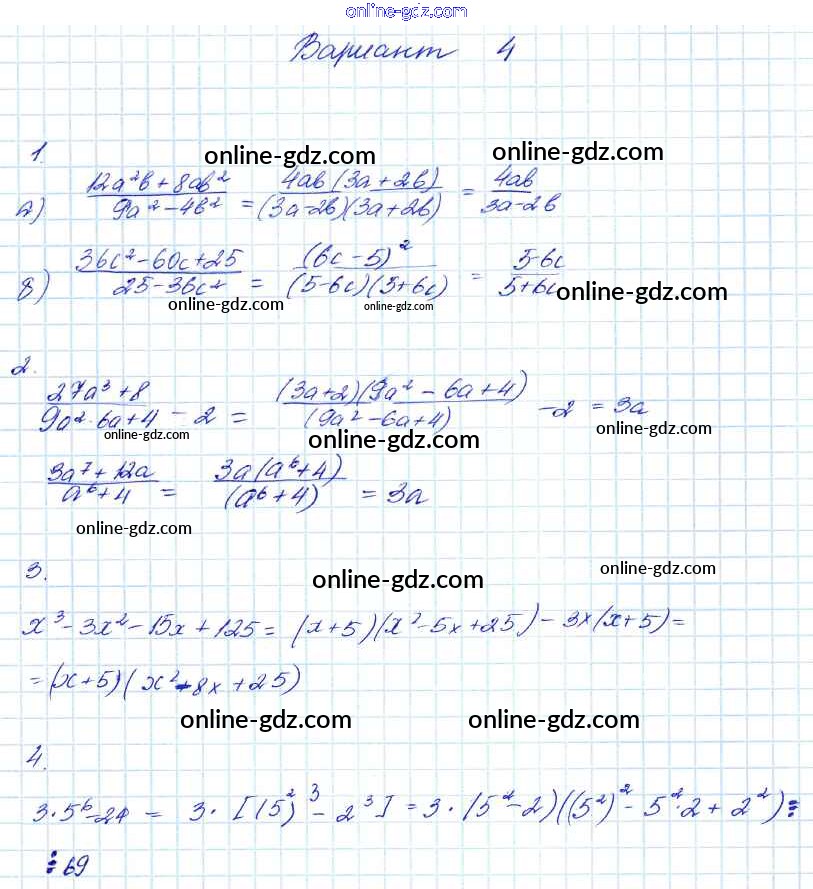 online-gdz.com
Вариант 4
1.
online-gdz.com online-gdz.com
а) (12a²b + 8ab²)/(9a² - 4b²) = (4ab(3a + 2b))/((3a-2b)(3a+2b)) = 4ab/(3a-2b)
б) (36c² - 60c + 25)/(25 - 36c²) = (6c - 5)²/((5-6c)(5+6c)) = (5-6c)/(5+6c)
online-gdz.com online-gdz.com online-gdz.com
2.
(27a³ + 8)/(9a² - 6a + 4) - 2 = ((3a+2)(9a² - 6a + 4))/(9a² - 6a + 4) - 2 = 3a
online-gdz.com online-gdz.com online-gdz.com
(3a⁷ + 12a)/(a⁶ + 4) = (3a(a⁶ + 4))/(a⁶ + 4) = 3a
online-gdz.com
3.
online-gdz.com online-gdz.com
x³ - 3x² - 15x + 125 = (x+5)(x² - 5x + 25) - 3x(x+5) =
= (x+5)(x² - 8x + 25)
online-gdz.com online-gdz.com
4.
3·5⁶ - 24 = 3·[(5²)³ - 2³] = 3·(5² - 2)((5²)² - 5²·2 + 2²) ⋮
⋮ 69
online-gdz.com online-gdz.com